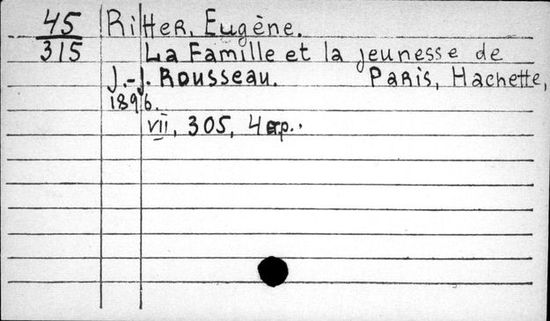 45 Ritter, Eugène.
315 La Famille et la jeunesse de
J.-J. Rousseau. Paris, Hachette,
1896.
vii, 305, 4 p..